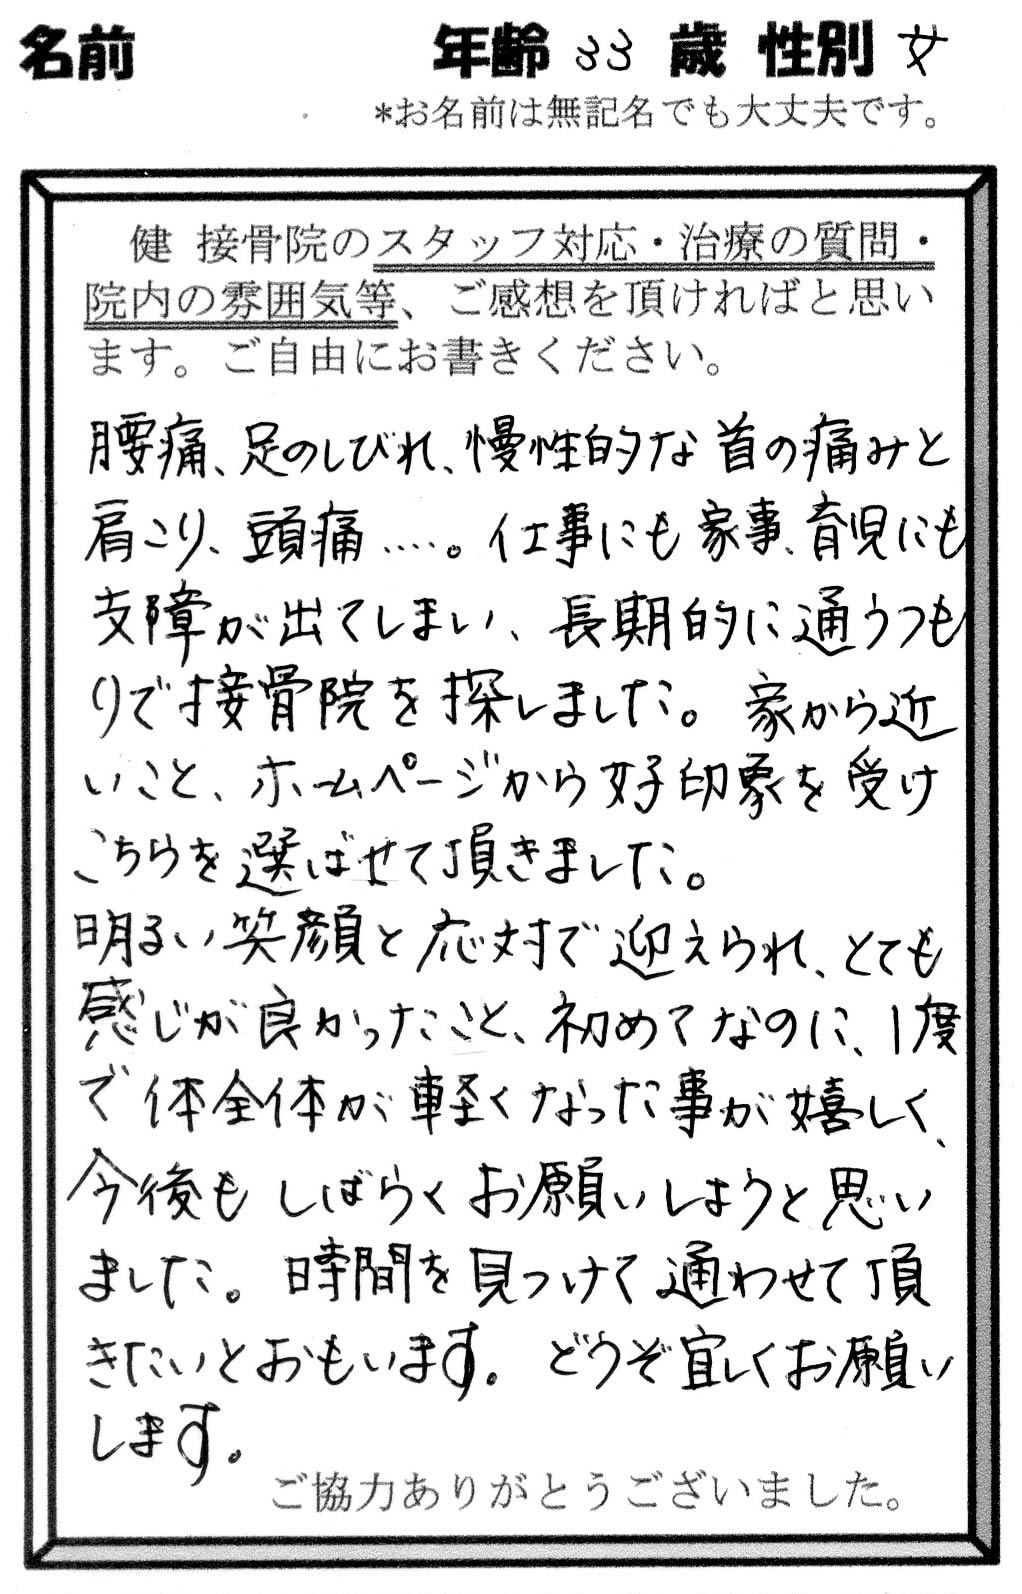 名前 年齢 33 歳 性別 女
*お名前は無記名でも大丈夫です。
健 接骨院のスタッフ対応・治療の質問・
院内の雰囲気等、ご感想を頂ければと思い
ます。ご自由にお書きください。
腰痛、足のしびれ、慢性的な首の痛みと
肩こり、頭痛‥‥。仕事にも家事、育児にも
支障が出てしまい、長期的に通うつも
りで接骨院を探しました。家から近
いこと、ホームページから好印象を受け
こちらを選ばせて頂きました。
明るい笑顔と応対で迎えられ、とても
感じが良かったこと、初めてなのに、1度
で体全体が軽くなった事が嬉しく、
今後もしばらくお願いしようと思い
ました。時間を見つけて通わせて頂
きたいとおもいます。どうぞ宜しくお願い
します。
ご協力ありがとうございました。